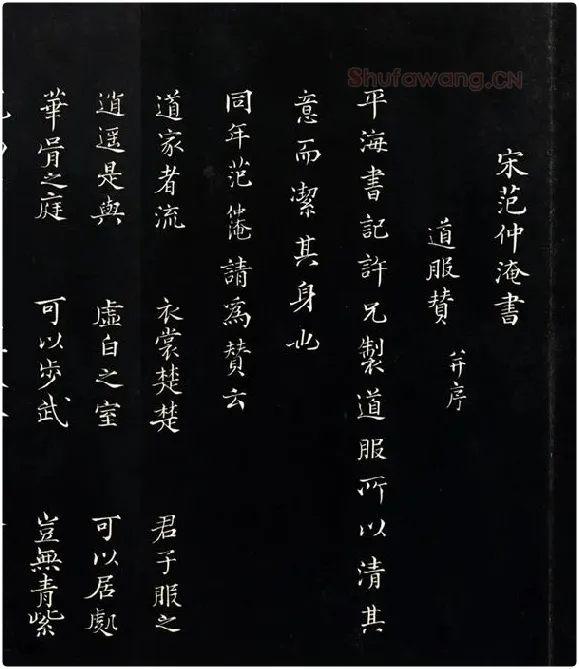 宋范仲淹書
道服賛 并序
平海書記許兄製道服所以清其
意而潔其身也
同年范仲淹請爲賛云
道家者流 衣裳楚楚 君子服之
逍遥是與 虚白之室 可以居處
華胥之庭 可以步武 豈無青紫
Shufawang.CN